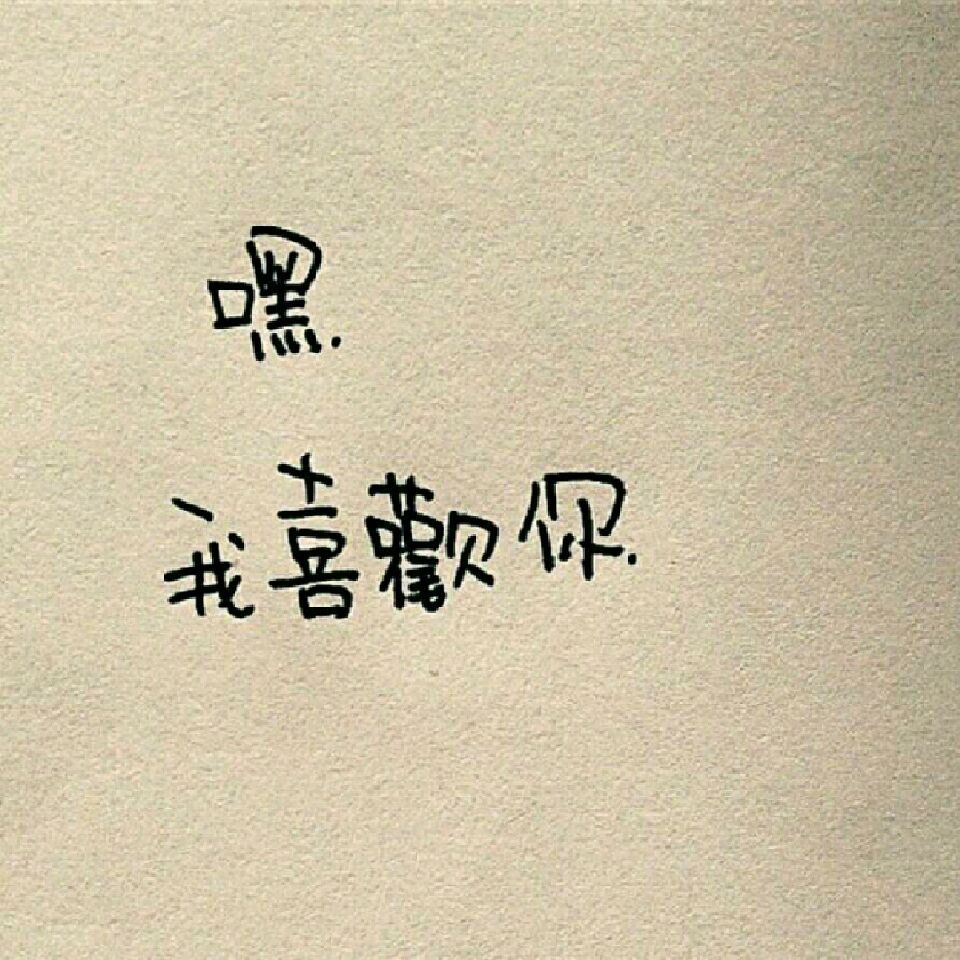 嘿.
我喜歡你.